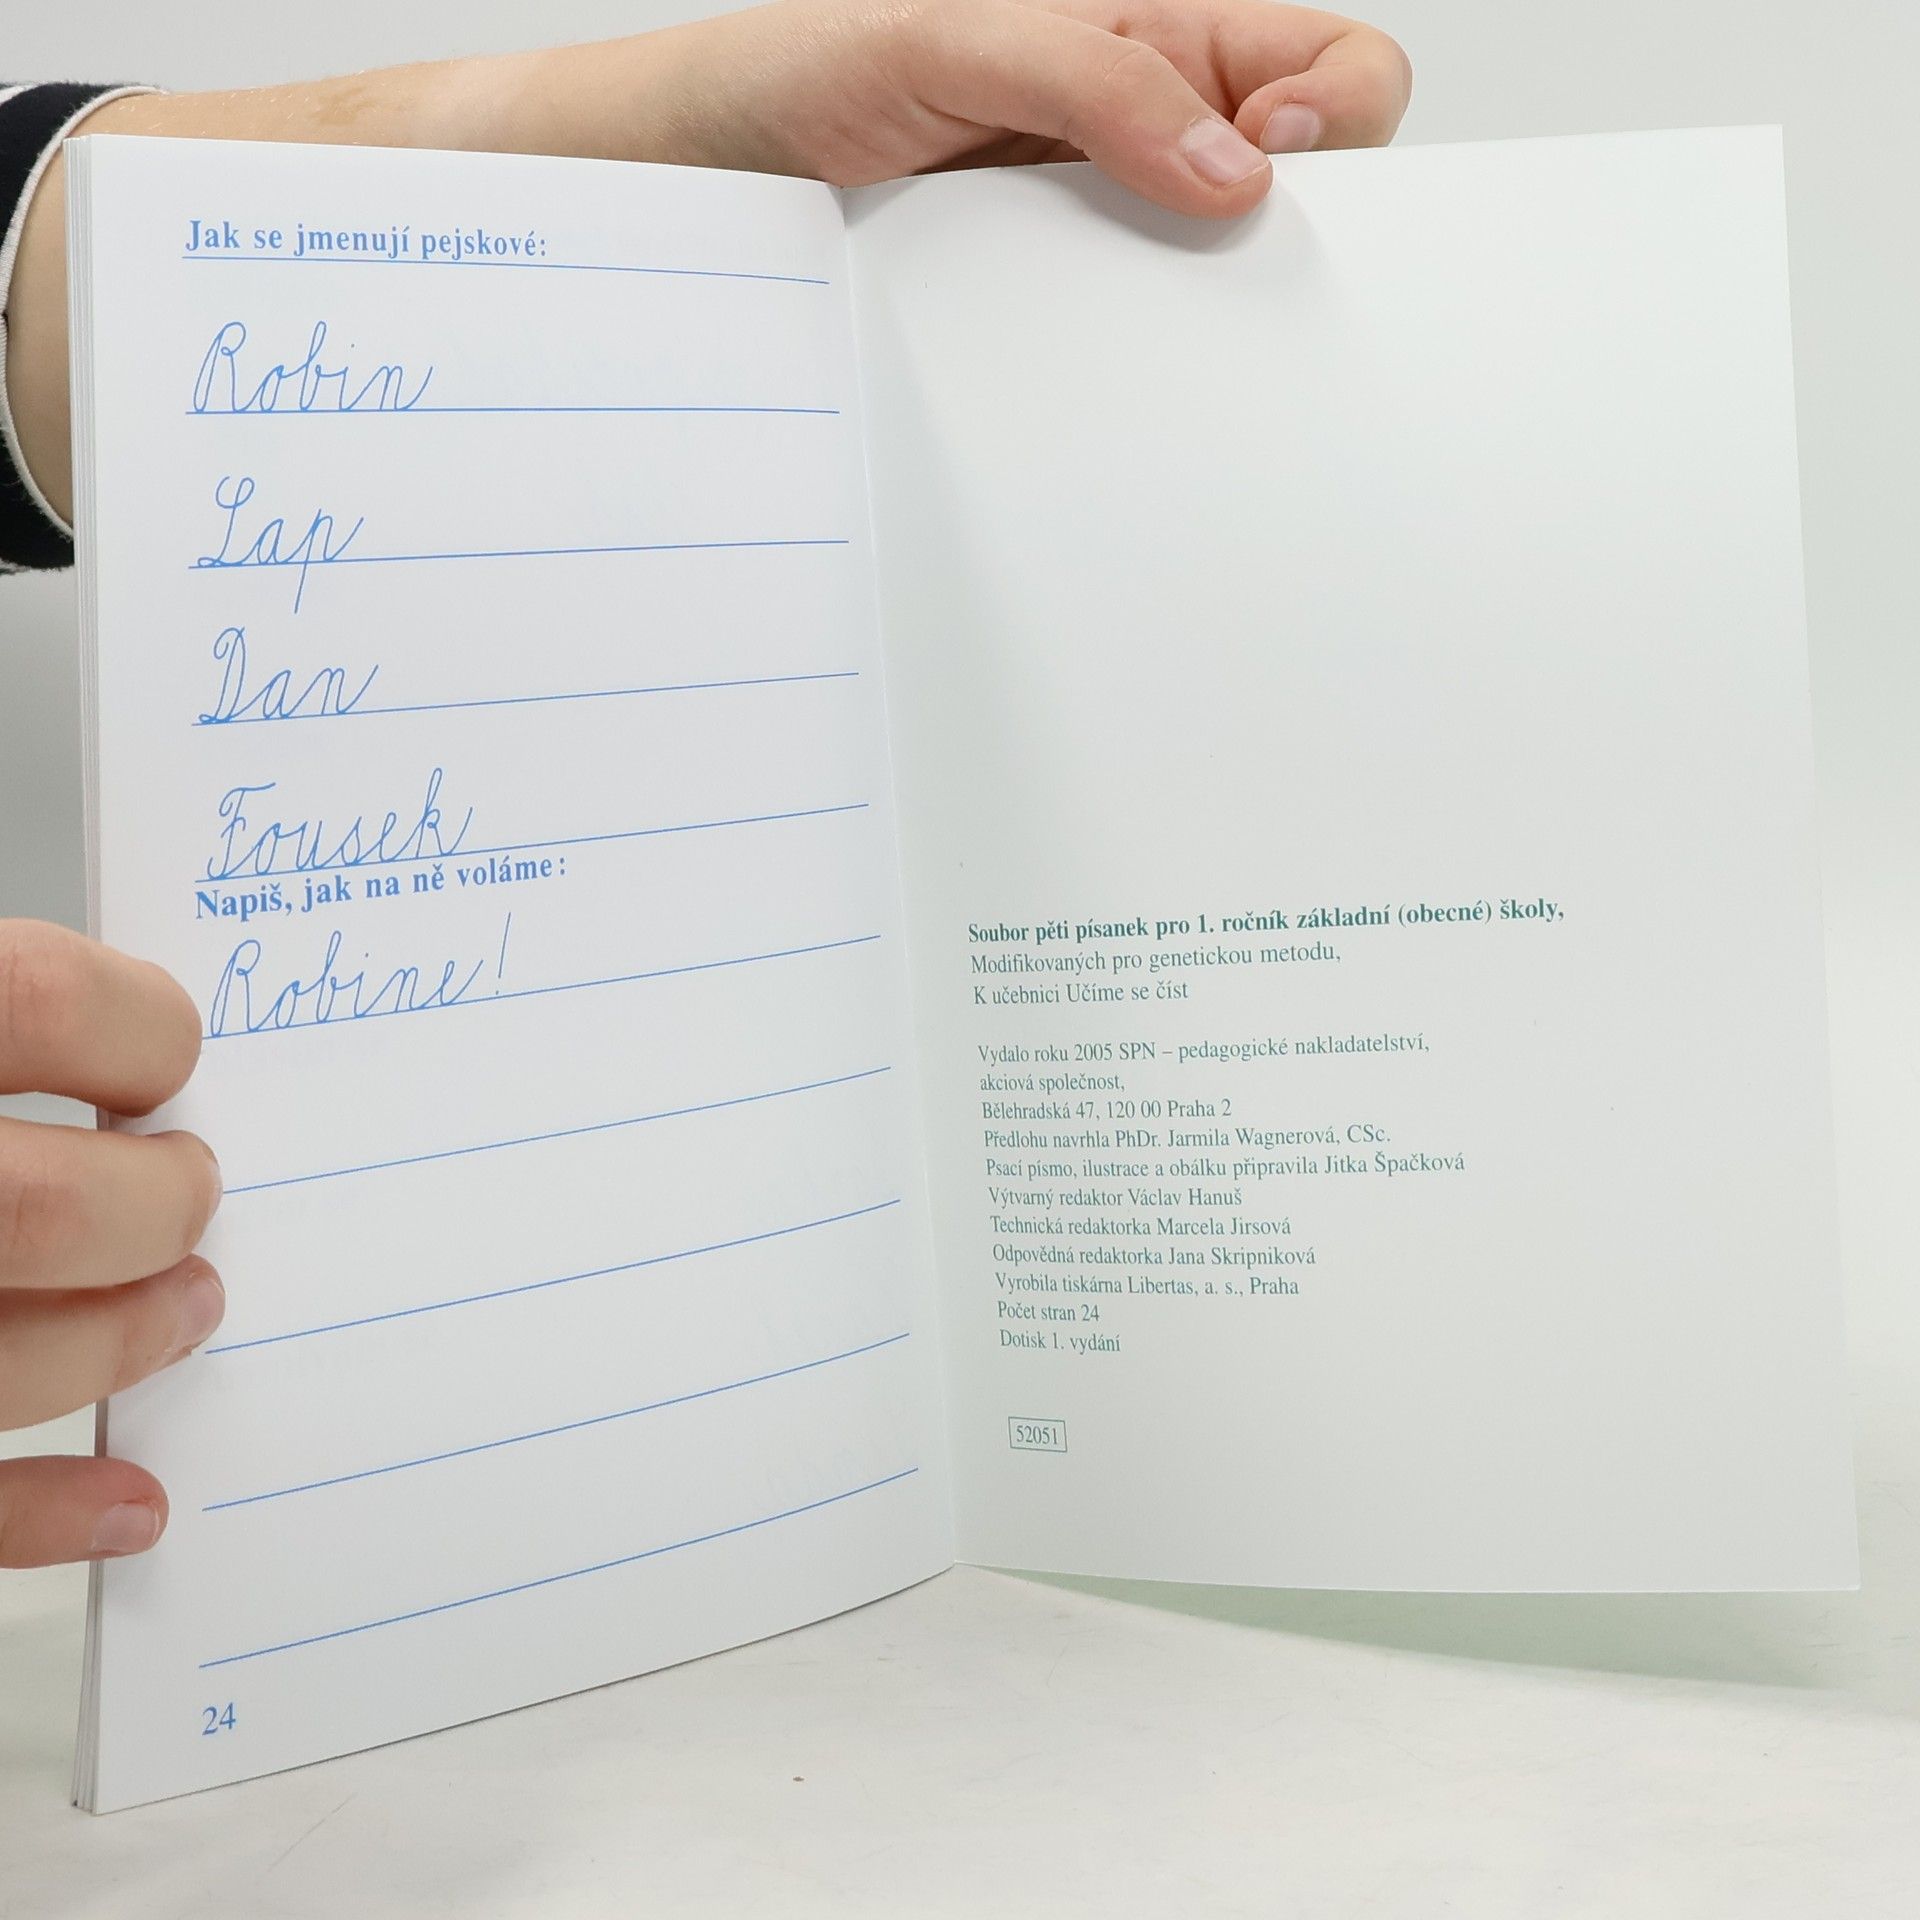 Jak se jmenují pejskové:
Robin
Lap
Dan
Fousek
Napiš, jak na ně voláme:
Robine!
24
Soubor pěti písanek pro 1. ročník základní (obecné) školy,
Modifikovaných pro genetickou metodu,
K učebnici Učíme se číst
Vydalo roku 2005 SPN – pedagogické nakladatelství,
akciová společnost,
Bělehradská 47, 120 00 Praha 2
Předlohu navrhla PhDr. Jarmila Wagnerová, CSc.
Psací písmo, ilustrace a obálku připravila Jitka Špačková
Výtvarný redaktor Václav Hanuš
Technická redaktorka Marcela Jirsová
Odpovědná redaktorka Jana Skripniková
Vyrobila tiskárna Libertas, a. s., Praha
Počet stran 24
Dotisk 1. vydání
52051